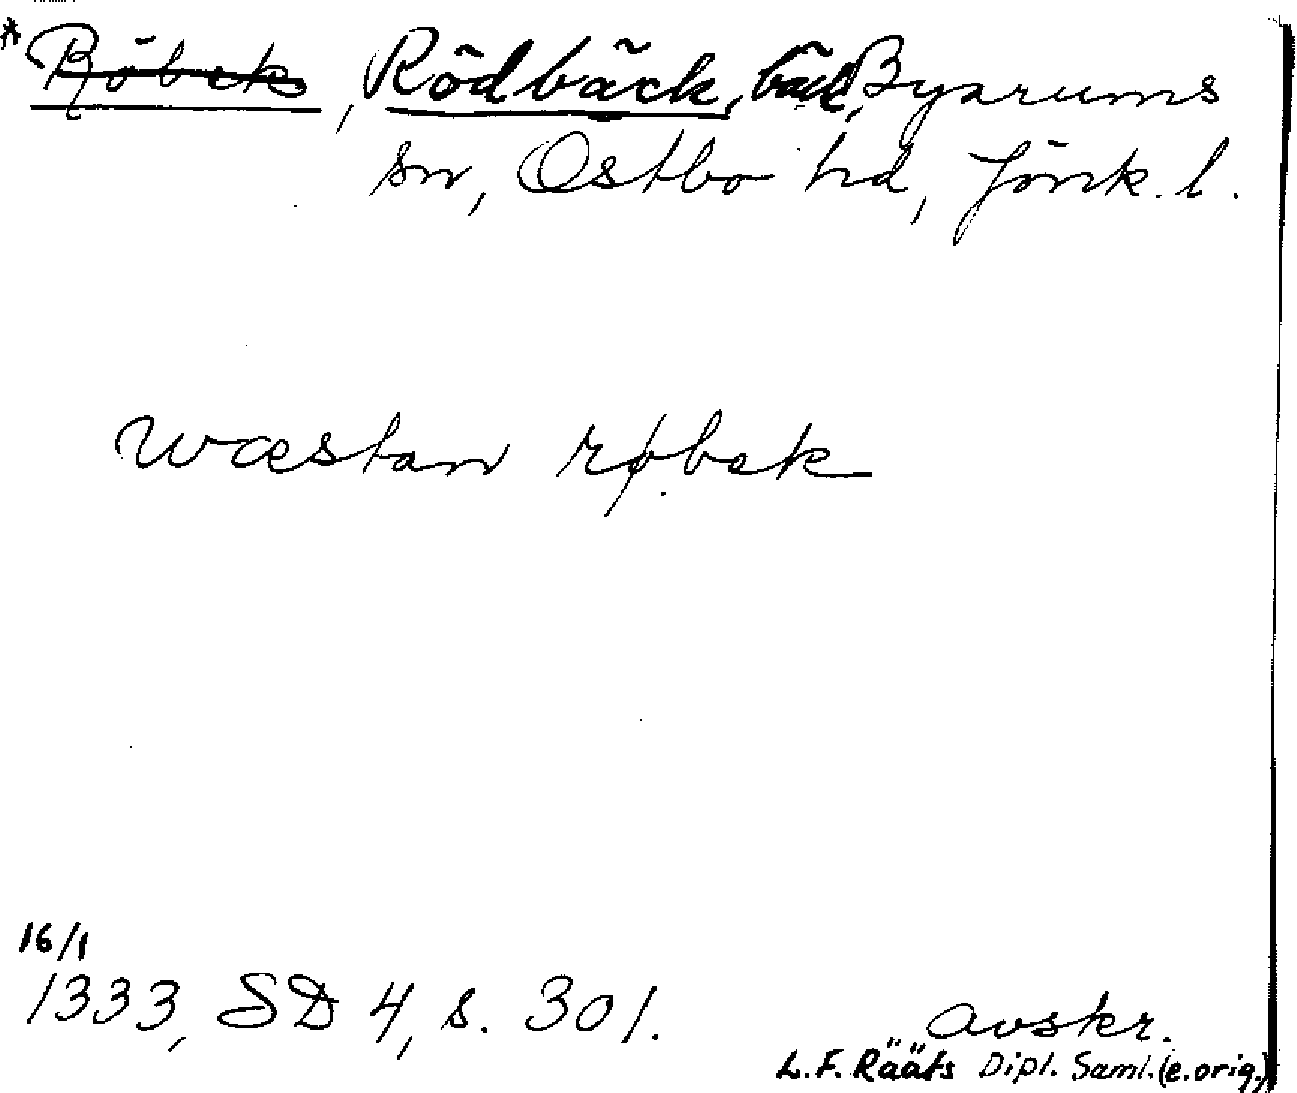 * Röbek, Rödbäck, bäck, Byarums
sn, Östbo hd, Jönk. l.
Wæstan røbæk
16/1
1333, SD 4, s. 301.
avskr.
L. F. Rääfs Dipl. Saml. (e. orig.)